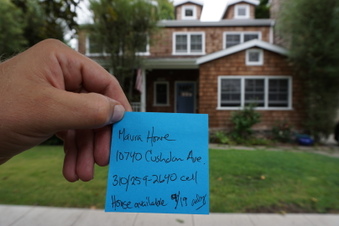 Miura Home
10740 Cushdon Ave
310/259-2640 cell
House available 9/19 only